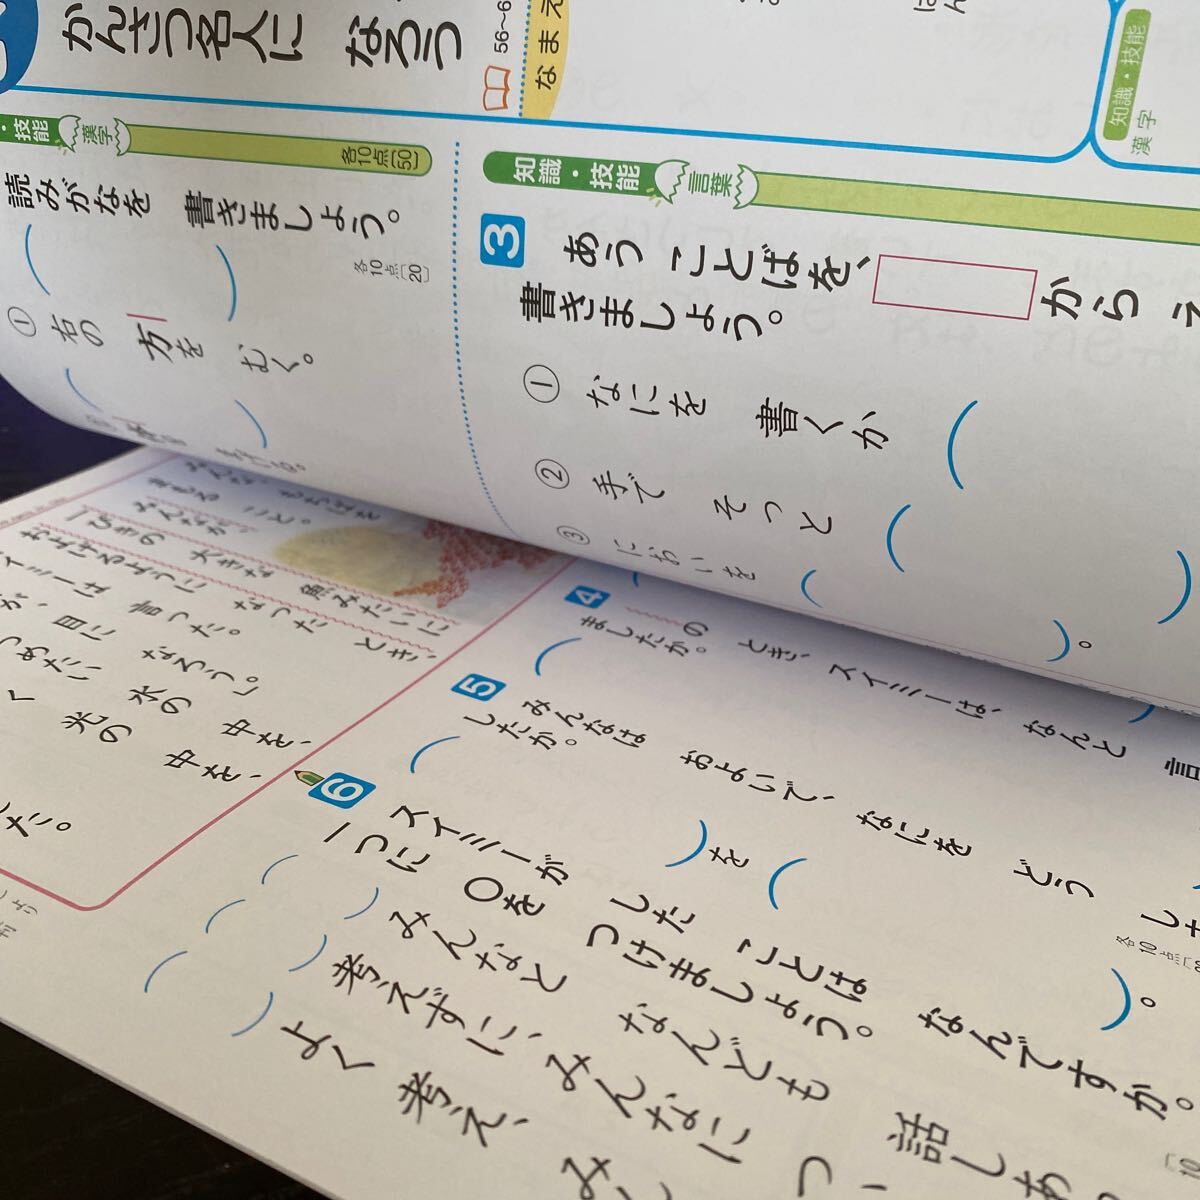 かんさつ名人に なろう
56〜6
なまえ
知識・技能
漢字
・技能
漢字
各10点[50]
読みがなを 書きましょう。
各10点[20]
① 右の 方を むく。
知識・技能
言葉
3 あう ことばを、 から
書きましょう。
① なにを 書くか
② 手で そっと
③ においを
4 の とき、スイミーは、なんと 言
ましたか。
5 みんなは およいで、なにを どう
したか。
を
各10点
6 スイミーが した ことは なんですか。
一つに ○を つけましょう。
みんなと なんども 話しあ
考えずに、みんなに
よく 考え、み
一ぴきの 大きな 魚みたいに
およげるように なった とき、
イミーは 言った。
が、目に なろう。」
つめたい 水の 中を、
く 光の 中を、
た。